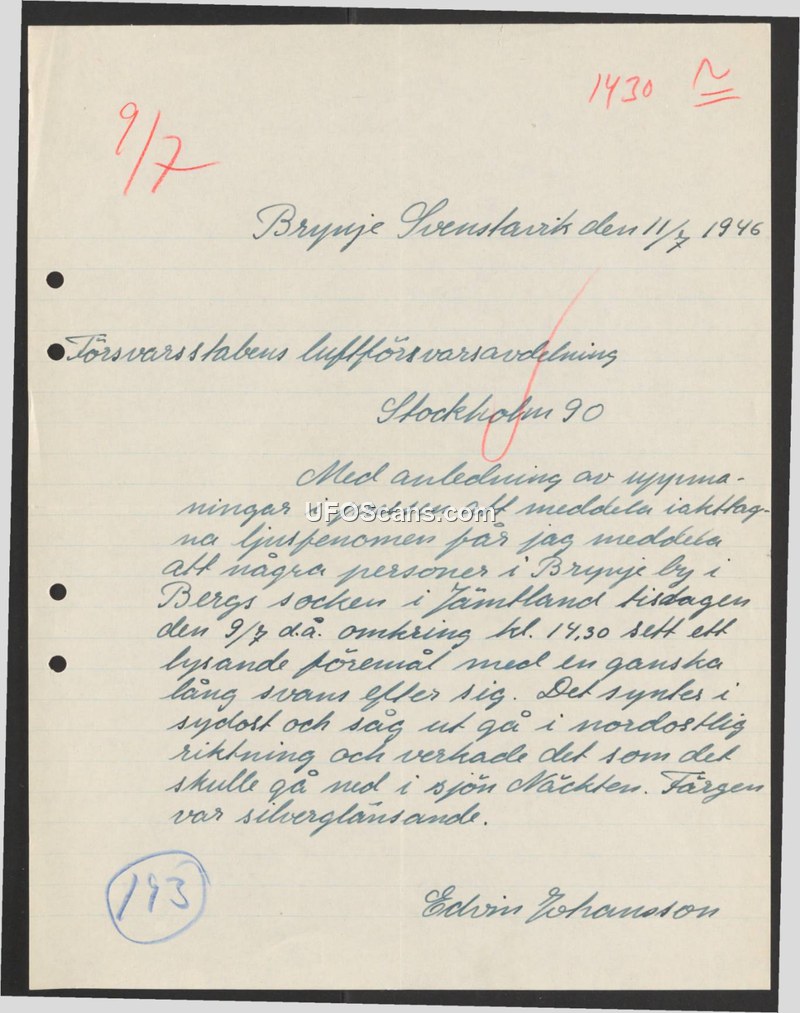 1430 N
9/7
Brynje Svenstavik den 11/7 1946
Försvarsstabens luftförsvarsavdelning
Stockholm 90
Med anledning av uppma-
ningar i pressen att meddela iakttag-
na ljusfenomen får jag meddela
att några personer i Brynje by i
Bergs socken i Jämtland tisdagen
den 9/7 d.å. omkring kl. 14,30 sett ett
lysande föremål med en ganska
lång svans efter sig. Det syntes i
sydost och såg ut gå i nordostlig
riktning och verkade det som det
skulle gå ned i sjön Näckten. Färgen
var silverglänsande.
193
Edvin Johansson
UFOScans.com